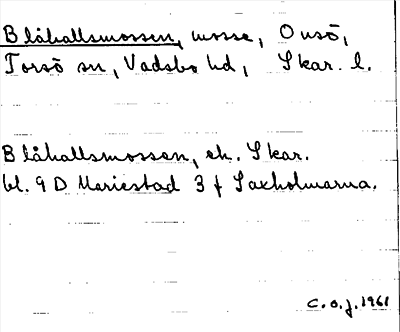 Blåhallsmossen, mosse, Onsö,
Torsö sn, Vadsbo hd, Skar. l.
Blåhallsmossen, ek. Skar.
bl. 9 D Mariestad 3 f Saxholmarna.
C.O.J. 1961